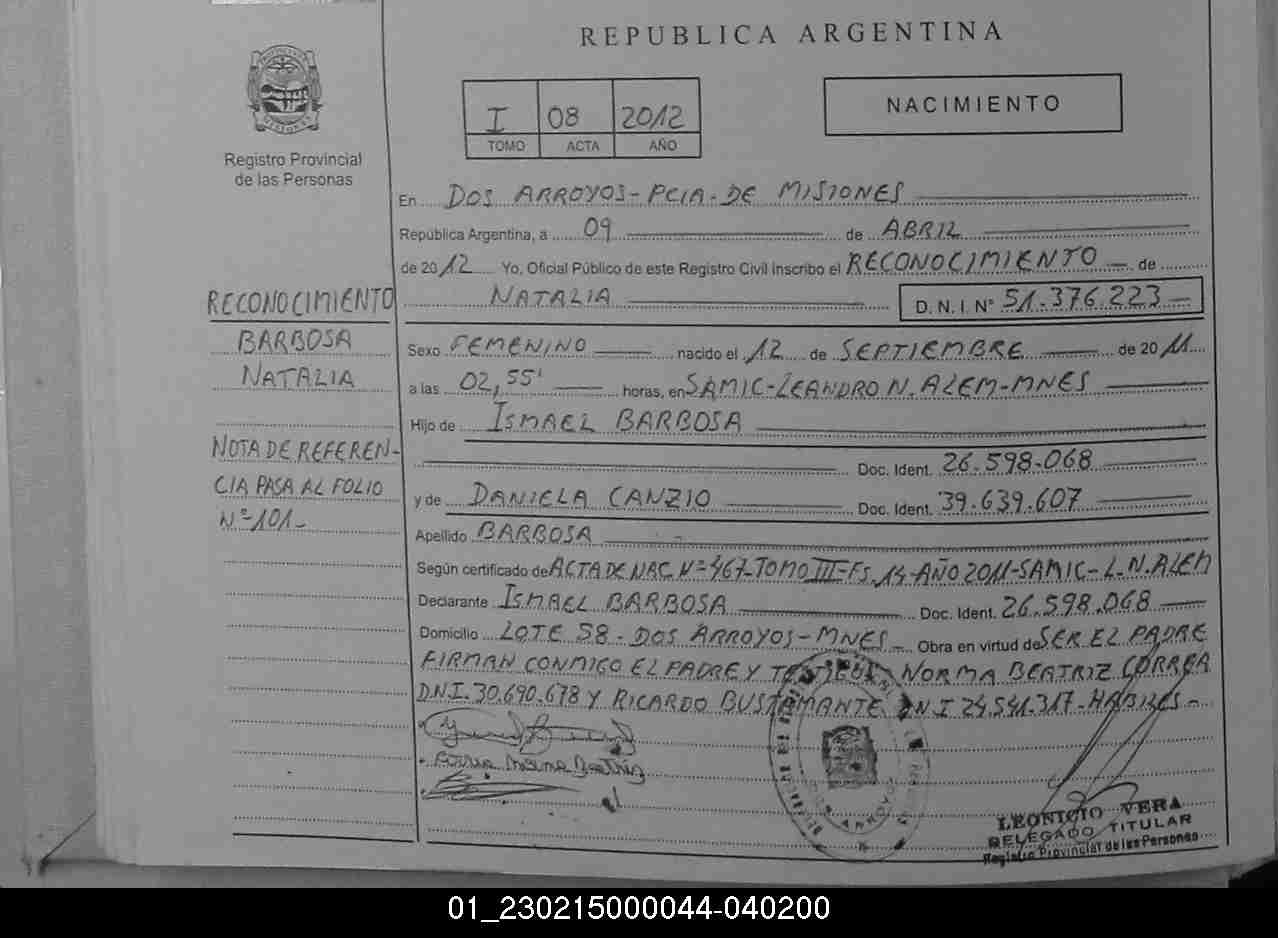 REPUBLICA ARGENTINA
PROVINCIA DE MISIONES
Registro Provincial
de las Personas
I 08 2012
TOMO ACTA AÑO
NACIMIENTO
En DOS ARROYOS-PCIA-DE MISIONES
República Argentina, a 09 de ABRIL
de 2012 Yo, Oficial Público de este Registro Civil inscribo el RECONOCIMIENTO de
NATALIA D.N.I. Nº 51.376.223
RECONOCIMIENTO
BARBOSA
NATALIA
NOTA DE REFEREN-
CIA PASA AL FOLIO
Nº-101-
Sexo FEMENINO nacido el 12 de SEPTIEMBRE de 2011
a las 02,55' horas, en SAMIC-LEANDRO N. ALEM-MNES
Hijo de ISMAEL BARBOSA
Doc. Ident. 26.598.068
y de DANIELA CANZIO Doc. Ident. 39.639.607
Apellido BARBOSA
Según certificado de ACTA DE NAC. Nº 467-TOMO III-Fs. 14-AÑO 2011-SAMIC-L-N.ALEM
Declarante ISMAEL BARBOSA Doc. Ident. 26.598.068
Domicilio LOTE 58-DOS ARROYOS-MNES- Obra en virtud de SER EL PADRE
FIRMAN CONMIGO EL PADRE Y TESTIGOS NORMA BEATRIZ CORREA
D.N.I. 30.690.678 Y RICARDO BUSTAMANTE D.N.I 24.541.317-HABILES-
LEONICIO VERA
DELEGADO TITULAR
Registro Provincial de las Personas
01_230215000044-040200